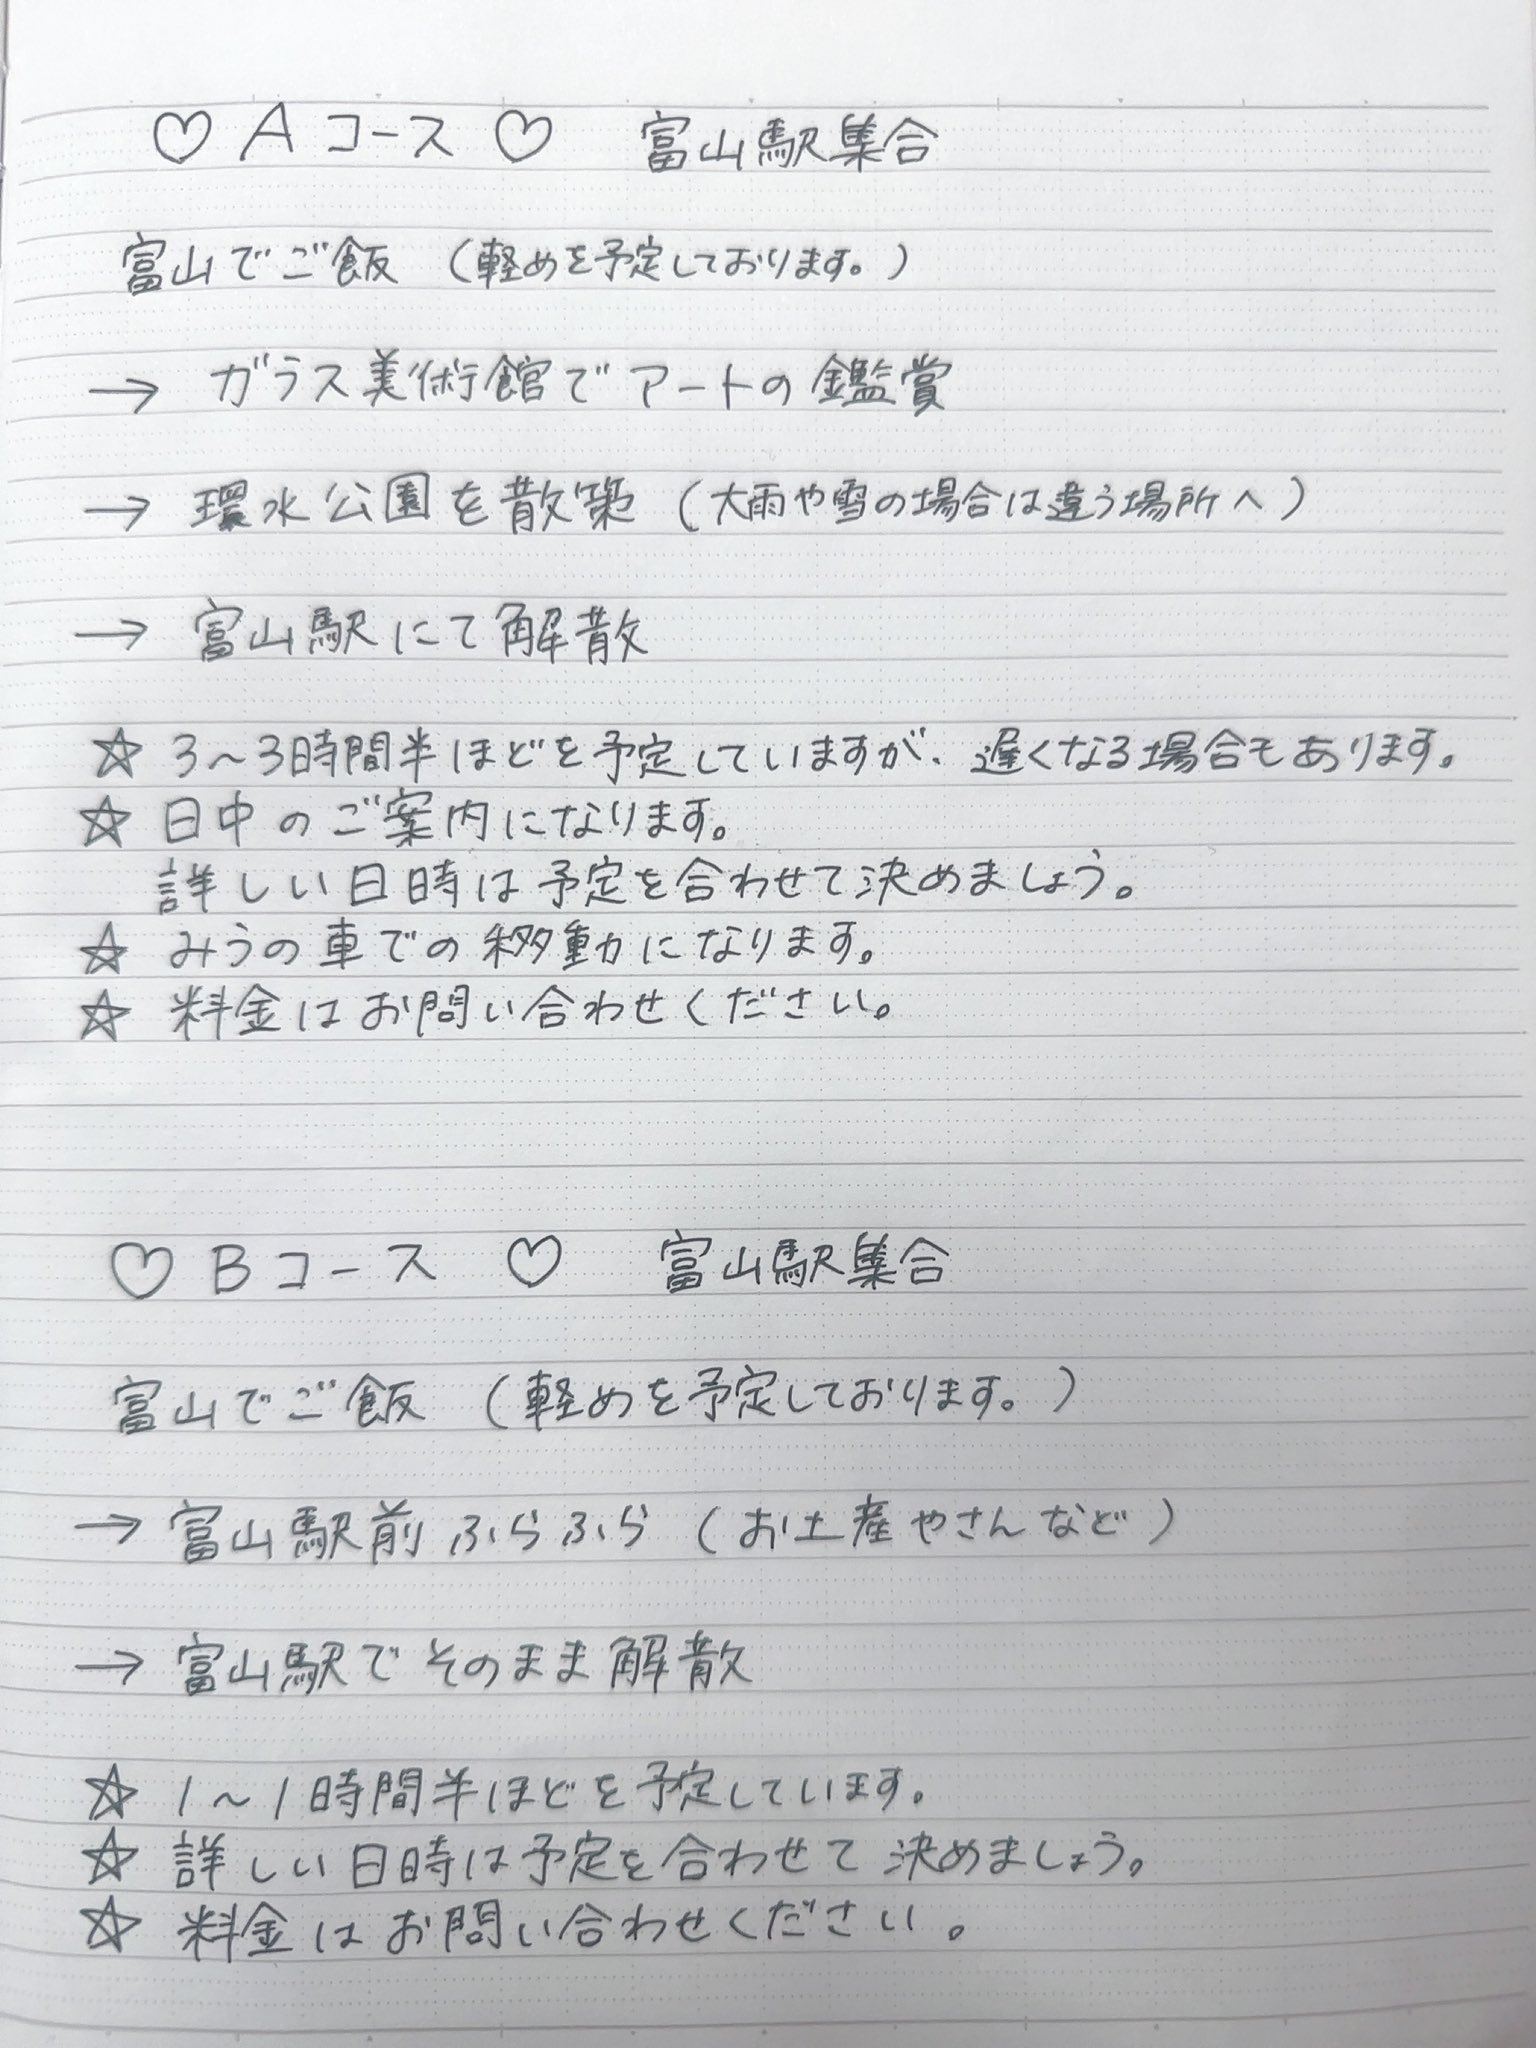 ♡ Aコース ♡ 富山駅集合
富山でご飯 (軽めを予定しております。)
→ ガラス美術館でアートの鑑賞
→ 環水公園を散策 (大雨や雪の場合は違う場所へ)
→ 富山駅にて解散
☆ 3~3時間半ほどを予定していますが、遅くなる場合もあります。
☆ 日中のご案内になります。
詳しい日時は予定を合わせて決めましょう。
☆ みうの車での移動になります。
☆ 料金はお問い合わせください。
♡ Bコース ♡ 富山駅集合
富山でご飯 (軽めを予定しております。)
→ 富山駅前ふらふら (お土産やさんなど)
→ 富山駅でそのまま解散
☆ 1~1時間半ほどを予定しています。
☆ 詳しい日時は予定を合わせて決めましょう。
☆ 料金はお問い合わせください。